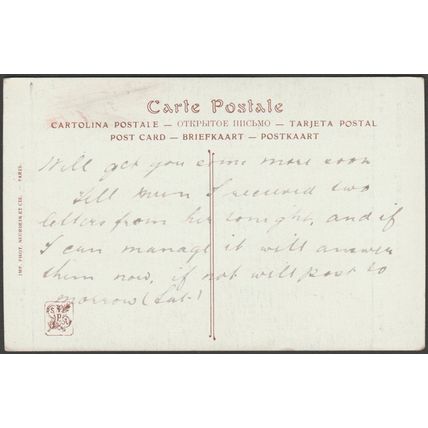 Carte Postale
CARTOLINA POSTALE — ОТКРЫТОЕ ПИСЬМО — TARJETA POSTAL
POST CARD — BRIEFKAART — POSTKAART
Will get you some more soon
Tell mum I received two
letters from her tonight, and if
I can manage it will answer
them now, if not will post to
morrow (Sat.)
IMP. PHOT. NEURDEIN ET CIE. — PARIS.